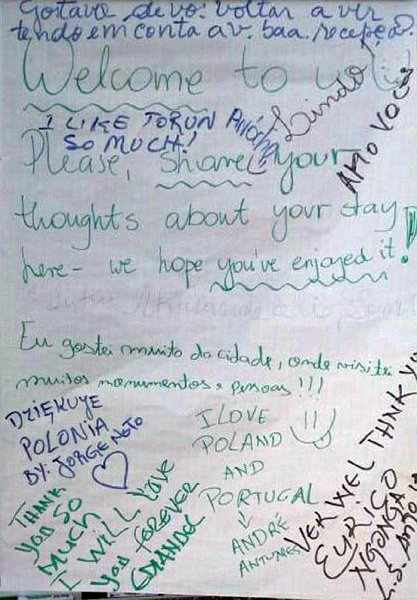 Gostava de vos voltar a ver
tendo em conta a v. boa recepção.
Welcome to
I LIKE TORUN
SO MUCH!
Lindo!
AMO VOCÊ
Please, share your
thoughts about your stay
here - we hope you've enjoyed it!
Eu gostei muito da cidade, onde visitei
muitos monumentos e pessoas!!!
DZIĘKUYE
POLONIA
BY: JORGE NETO
I LOVE
POLAND
AND
PORTUGAL
ANDRÉ
ANTUNES
THANK
you SO
MUCH
I WILL LOVE
you FOREVER
VER WEL THANK YOU
EURICO